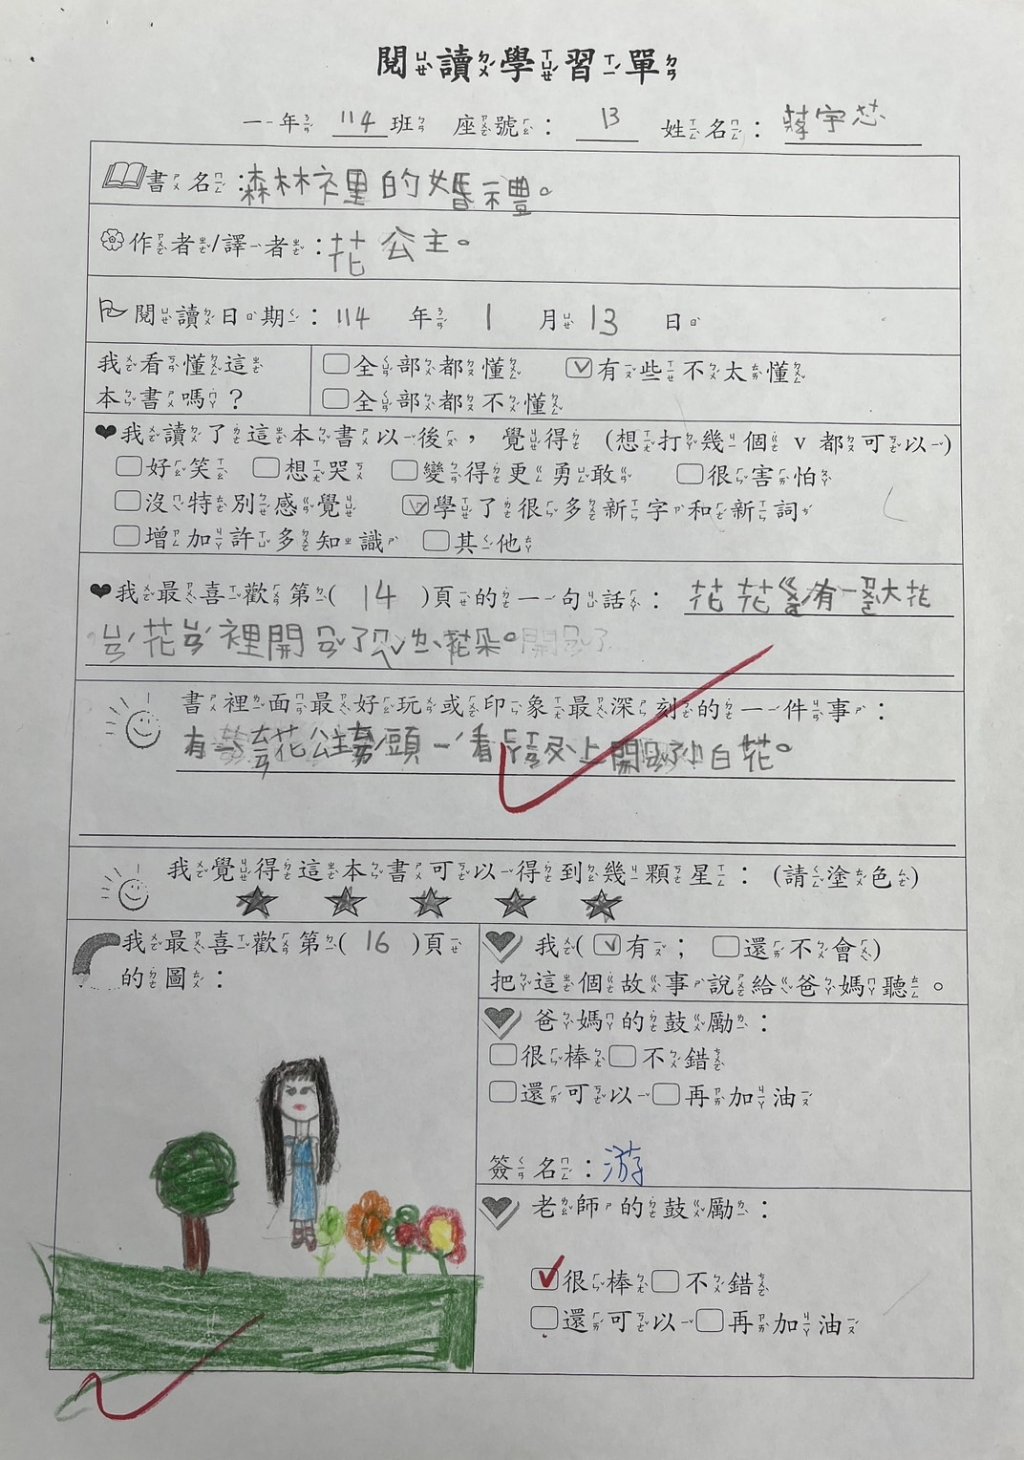 閱讀學習單
一年 114 班 座號： 13 姓名： 蔣宇芯
書名：森林裡的婚禮。
作者/譯者：花公主。
閱讀日期： 114 年 1 月 13 日
我看懂這本書嗎？
全部都懂 有些不太懂
全部都不懂
我讀了這本書以後，覺得 (想打幾個 v 都可以)
好笑 想哭 變得更勇敢 很害怕
沒特別感覺 學了很多新字和新詞
增加許多知識 其他
我最喜歡第( 14 )頁的一句話： 花花 有一 大花
花 裡開 了 花朵。
書裡面最好玩或印象最深刻的一件事：
有 花公主 頭一看 上開 小白花。
我覺得這本書可以得到幾顆星：(請塗色)
我最喜歡第( 16 )頁
的圖：
我( v 有； 還不會)
把這個故事說給爸媽聽。
爸媽的鼓勵：
很棒 不錯
還可以 再加油
簽名：游
老師的鼓勵：
很棒 不錯
還可以 再加油